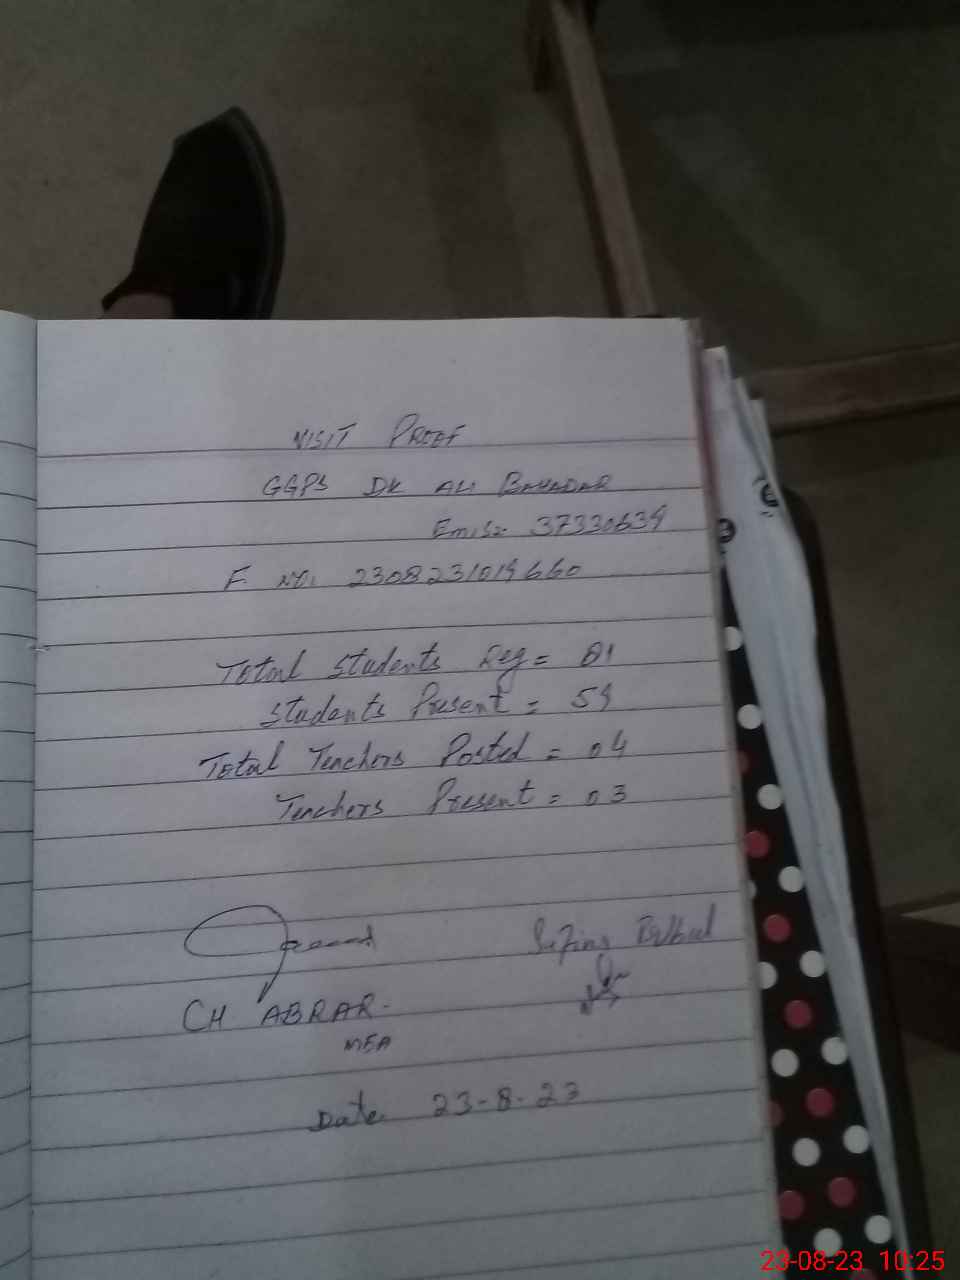 VISIT PROOF
GGPS DK ALI BAHADAR
Emis= 37330634
F. NO. 2308231014660
Total Students Reg = 81
Students Present = 54
Total Teachers Posted = 04
Teachers Present = 03
CH ABRAR.
MEA
Date 23-8-23
23-08-23 10:25